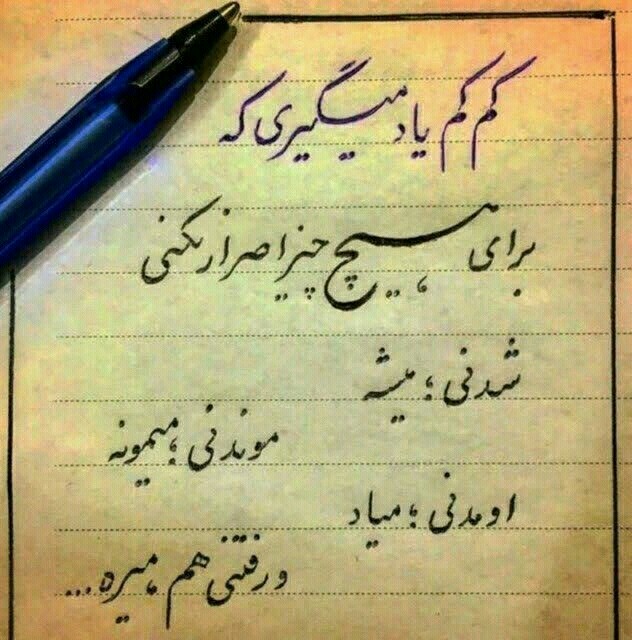 کم کم یاد میگیری که
برای هیچ چیز اصرار نکنی
شدنی ؛ میشه
موندنی ؛ میمونه
اومدنی ؛ میاد
و رفتنی هم ، میره...